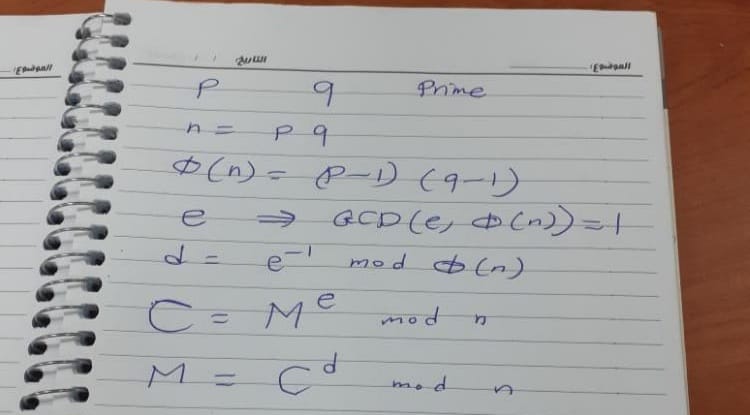 الموضوع:
التاريخ / /
الموضوع:
p q Prime
n = p q
Φ(n) = (p-1) (q-1)
e ⇒ GCD(e, Φ(n)) = 1
d = e⁻¹ mod Φ(n)
C = Mᵉ mod n
M = Cᵈ mod n